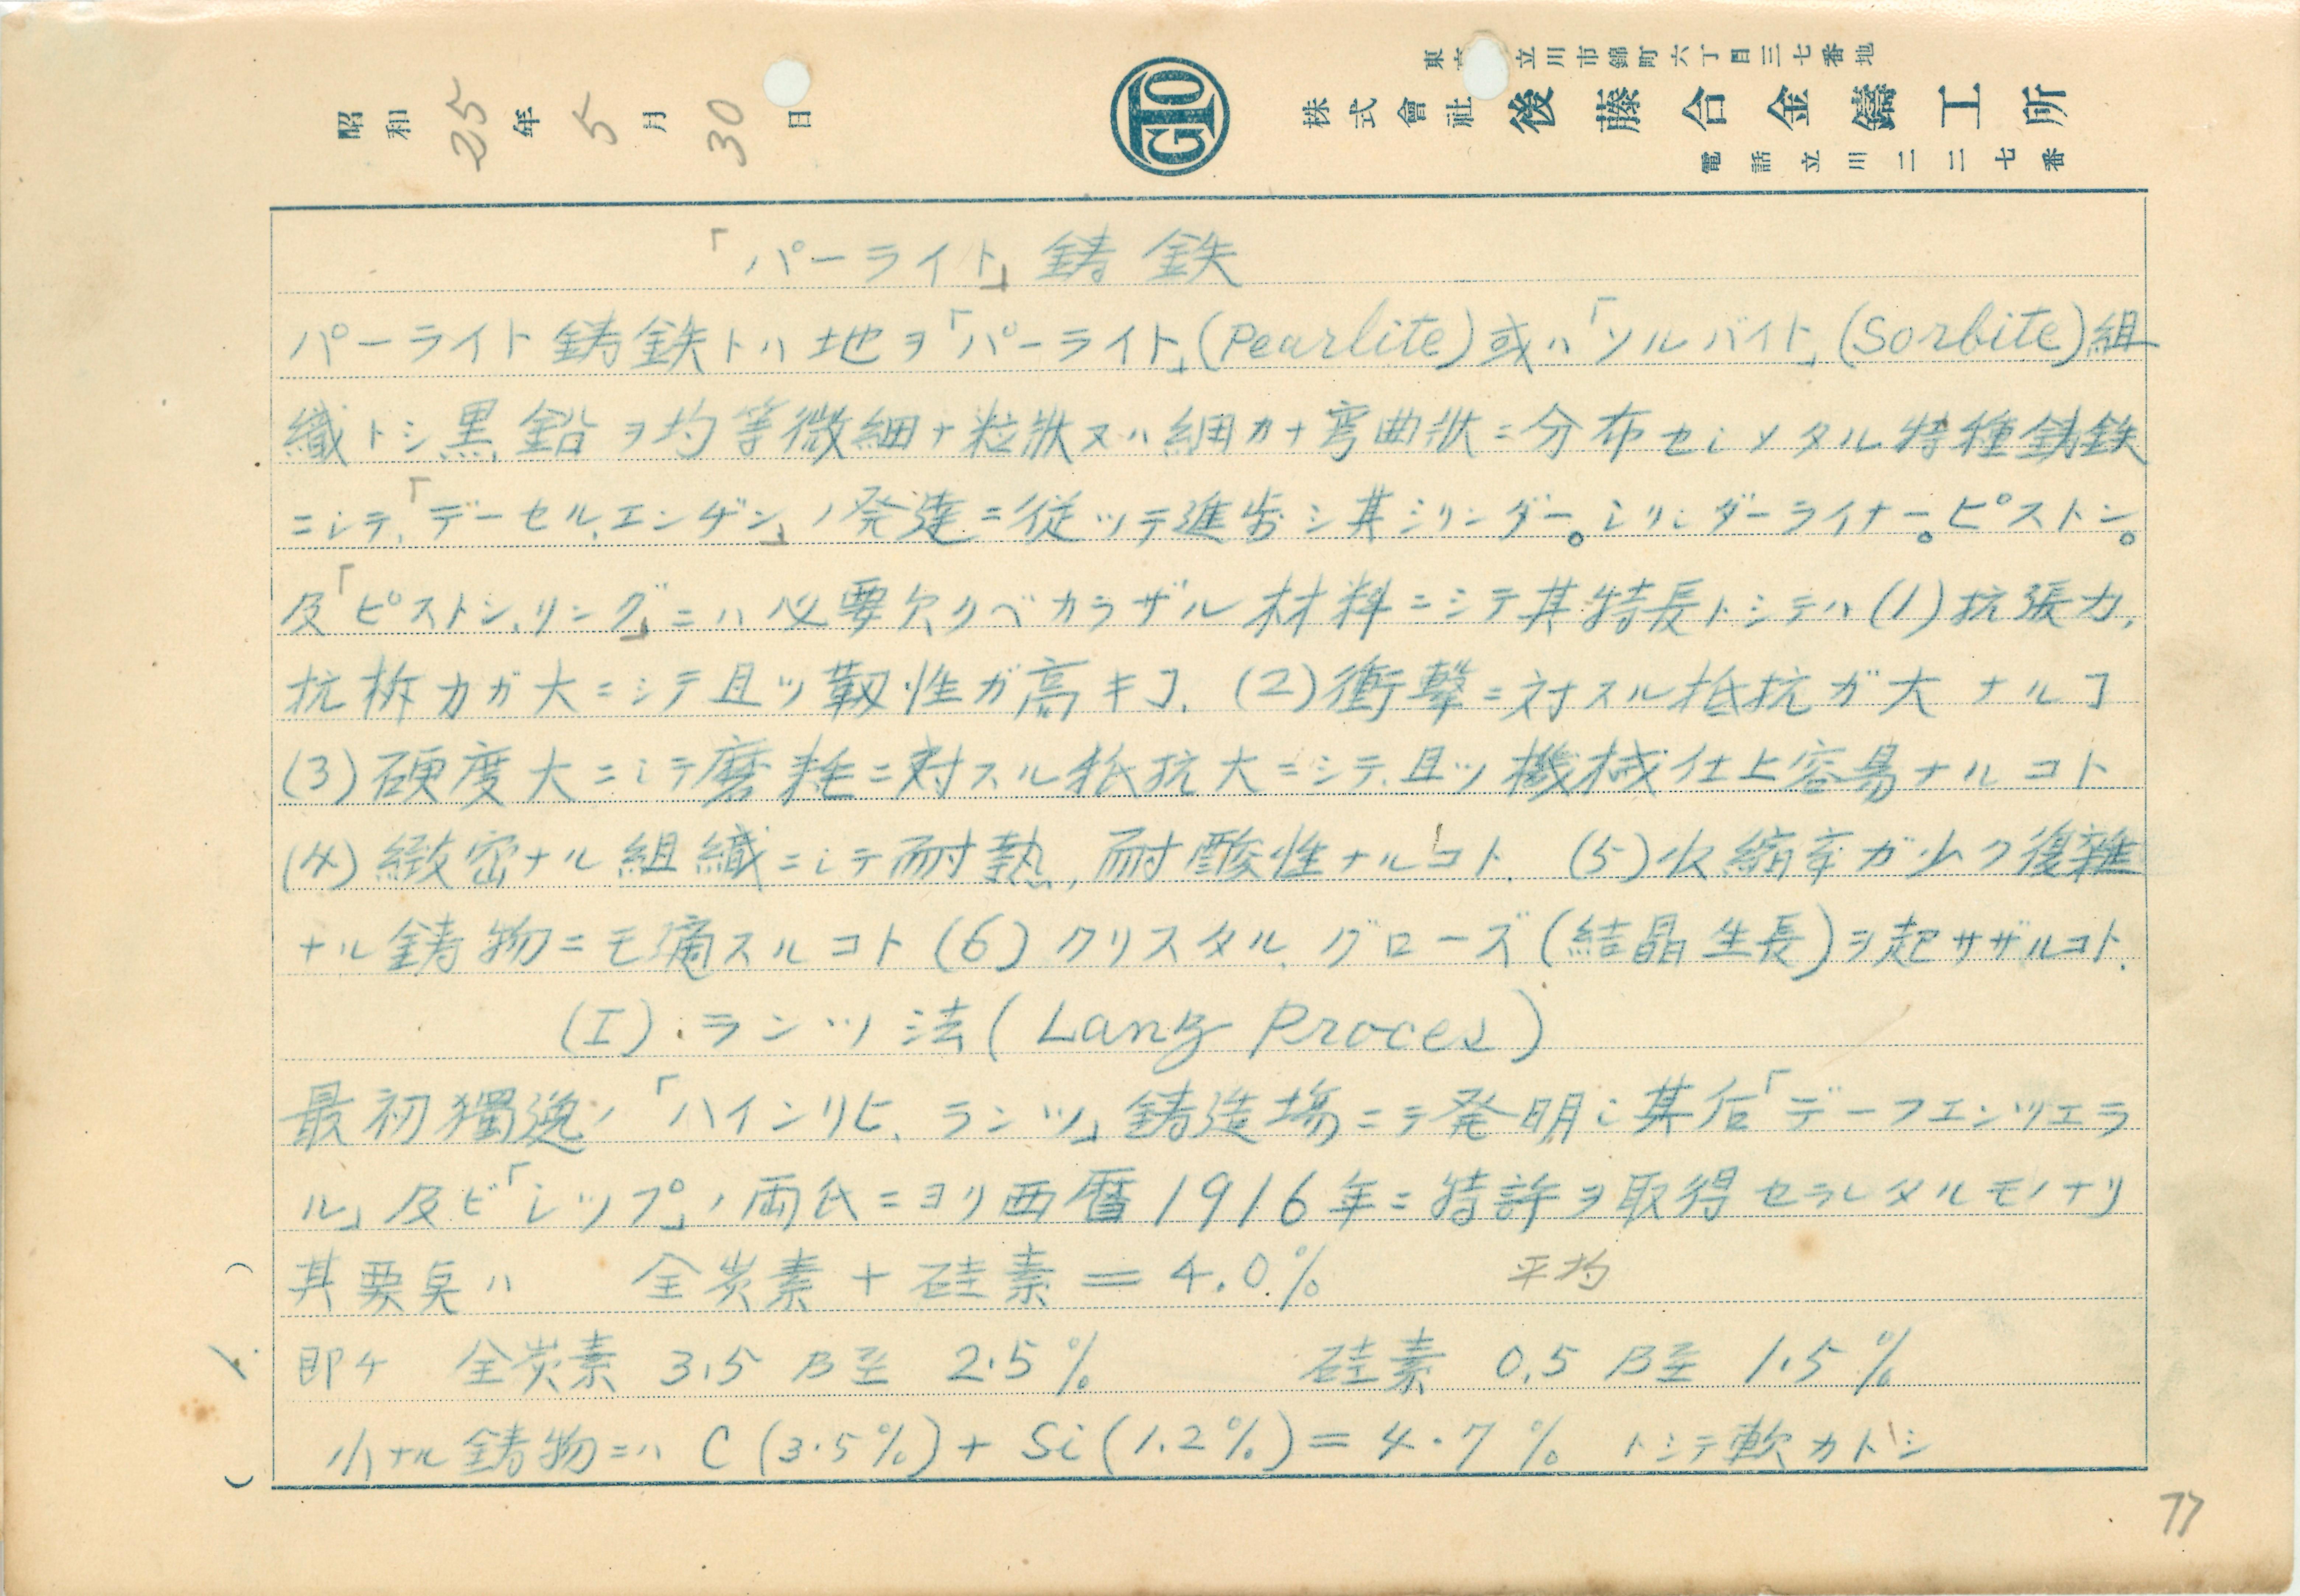 昭和25年5月30日
GTO
立川市錦町六丁目三七番地
株式會社後藤合金鑄工所
電話立川二二七番
「パーライト」鋳鉄
パーライト鋳鉄トハ地ヲ「パーライト」(Pearlite)或ハ「ソルバイト」(Sorbite)組
織トシ黒鉛ヲ均等微細ナ粒状又ハ細カナ弯曲状ニ分布セシメタル特種鋳鉄
ニシテ,「デーセル,エンヂン」ノ発達ニ従ッテ進歩シ其シリンダー。シリンダーライナー。ピストン。
及「ピストン,リング」ニハ必要欠クベカラザル材料ニシテ其特長トシテハ(1)抗張力,
抗折力ガ大ニシテ且ッ靱性ガ高キヿ. (2)衝撃ニ対スル抵抗ガ大ナルヿ
(3)硬度大ニシテ磨耗ニ対スル抵抗大ニシテ,且ッ機械仕上容易ナルコト
(4)緻密ナル組織ニシテ耐熱,耐酸性ナルコト. (5)収縮率ガ少ク復雑
ナル鋳物ニモ適スルコト(6)クリスタル,グローズ(結晶生長)ヲ起サザルコト.
(I).ランツ法(Lanz Proces)
最初獨逸ノ「ハインリヒ、ランツ」鋳造場ニテ発明シ其后「デーフエンツエラ
ル」及ビ「シップ」ノ両氏ニヨリ西暦1916年ニ特許ヲ取得セラレタルモノナリ
其要点ハ 全炭素+硅素=4.0% 平均
即チ 全炭素 3.5乃至 2.5% 硅素 0.5乃至 1.5%
小ナル鋳物ニハ C(3.5%)+Si(1.2%)=4.7% トシテ軟カトシ
77